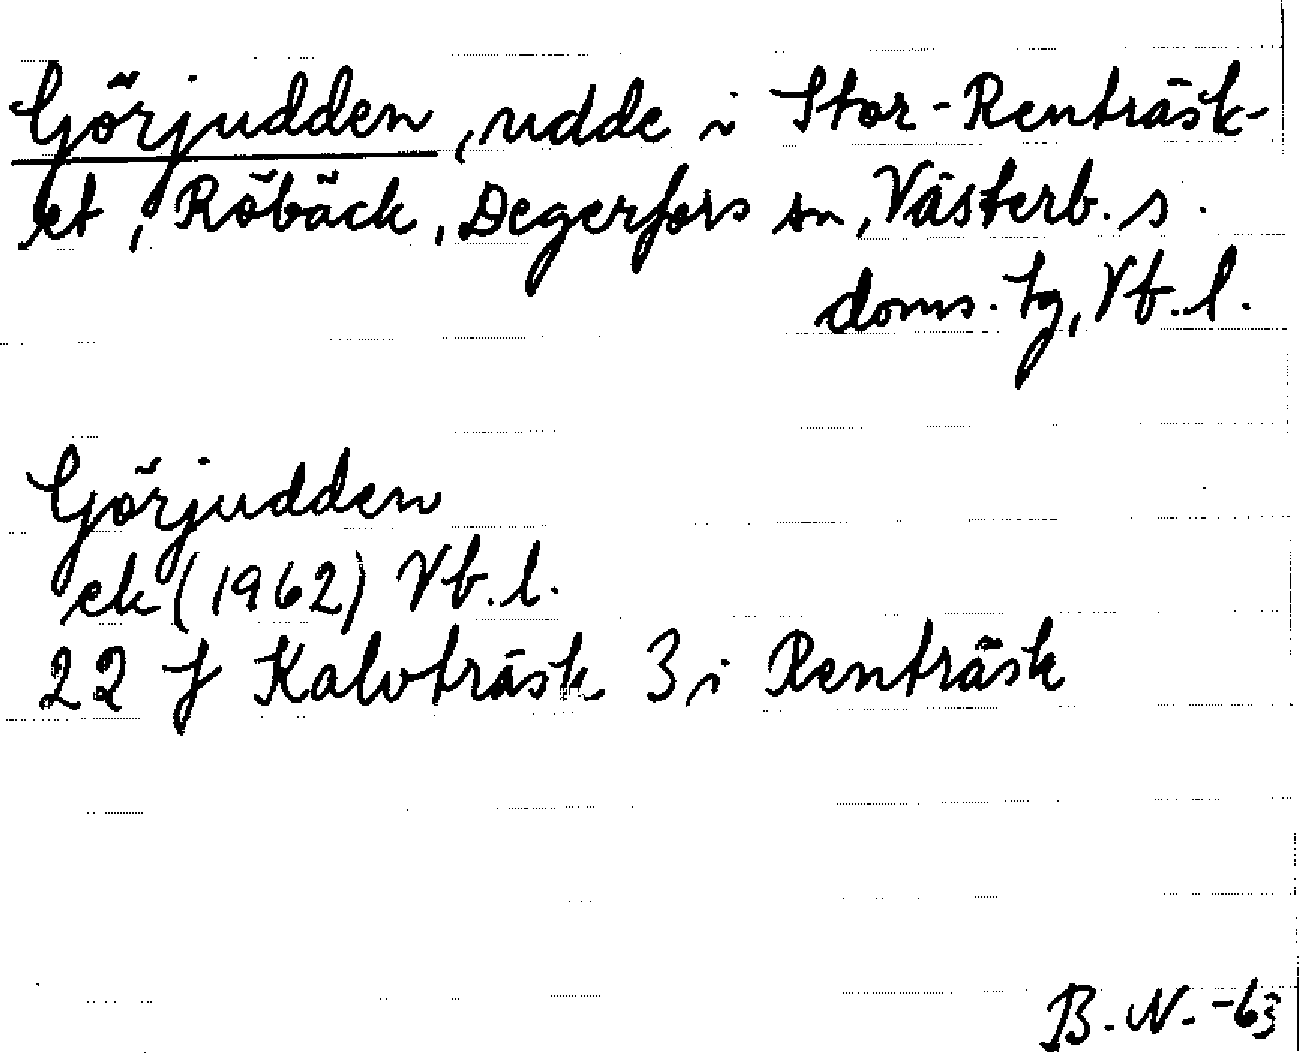 Görjudden, udde i Stor-Renträsk-
et, Röbäck, Degerfors sn, Västerb. s.
doms. tg, Vb. l.
Görjudden
ek (1962) Vb. l.
22 J Kalvträsk 3 i Renträsk
B. N. -63